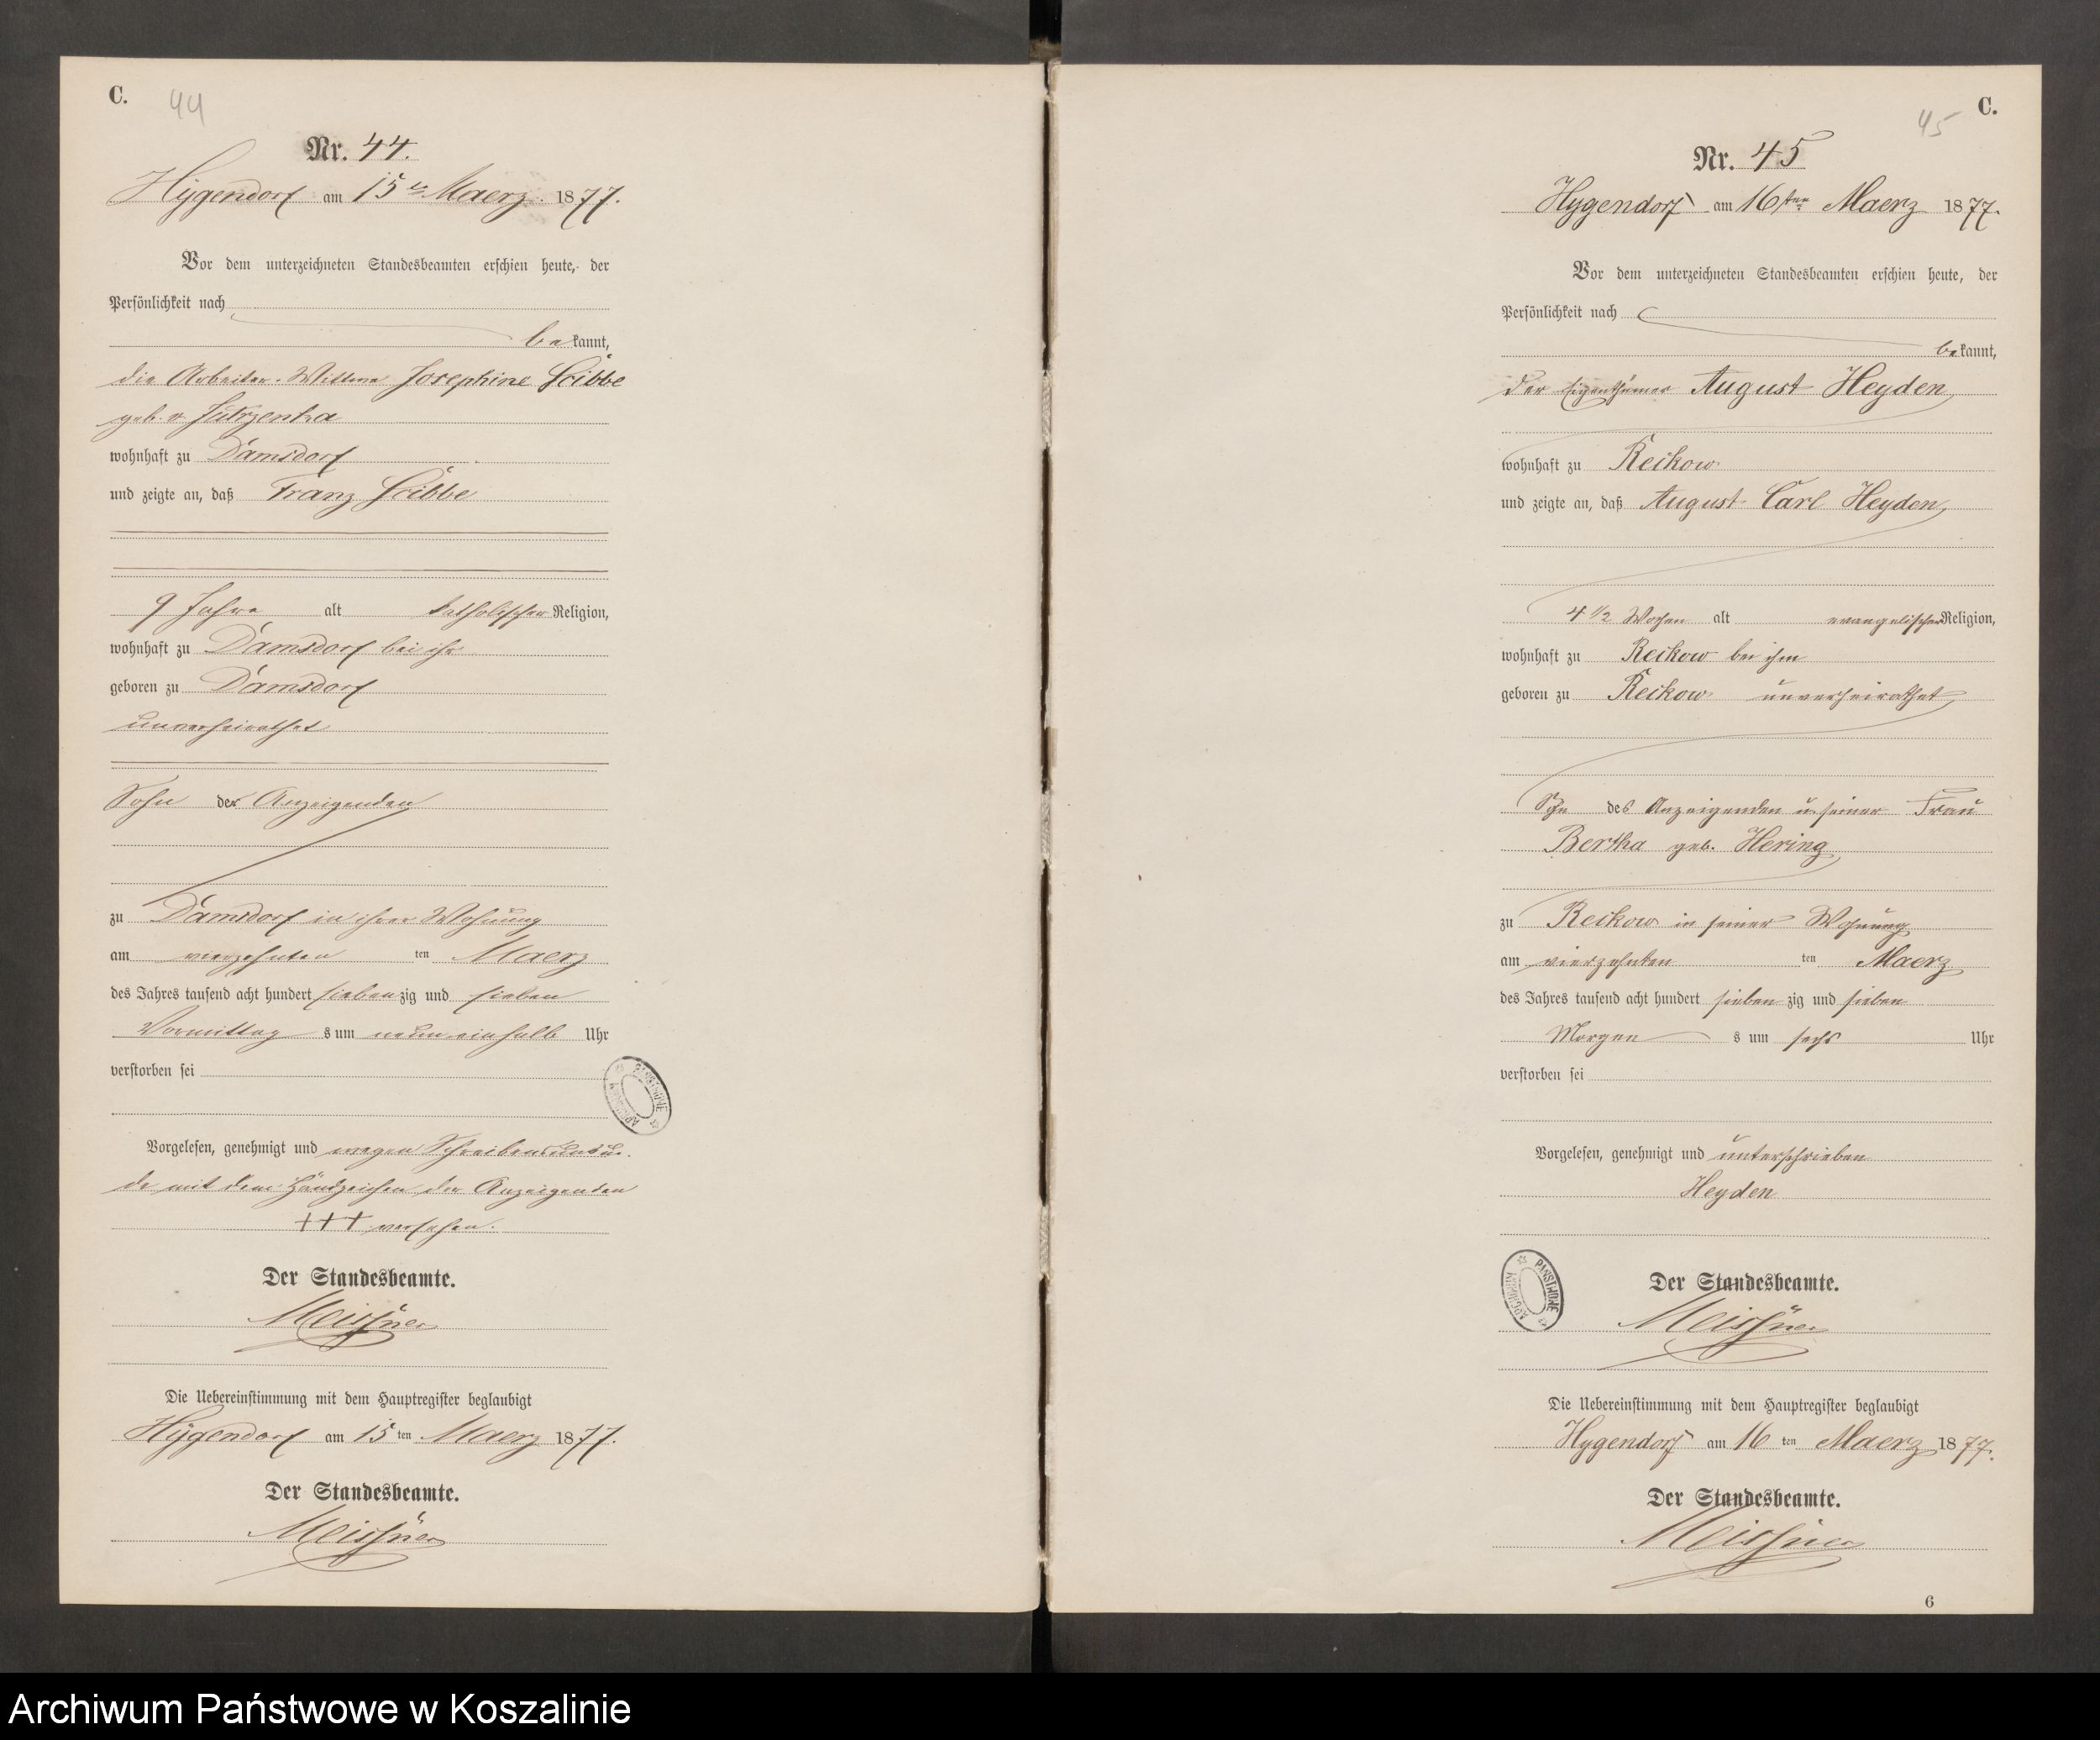 C.
44
Nr. 44.
Hygendorf am 15ten Maerz 1877.
Vor dem unterzeichneten Standesbeamten erschien heute, der
Persönlichkeit nach
bekannt,
die Arbeiter-Wittwe Josephine Scibbe
geb. v. Jutrzenka
wohnhaft zu Damsdorf
und zeigte an, daß Franz Scibbe
9 Jahre alt katholischer Religion,
wohnhaft zu Damsdorf bei ihr
geboren zu Damsdorf
unverheirathet
Sohn der Anzeigenden
zu Damsdorf in ihrer Wohnung
am vierzehnten ten Maerz
des Jahres tausend acht hundert siebenzig und sieben
Vormittag s um neun einhalb Uhr
verstorben sei
Vorgelesen, genehmigt und wegen Schreibensunkun-
de mit dem Handzeichen der Anzeigenden
+++ versehen.
Der Standesbeamte.
Meissner
Die Uebereinstimmung mit dem Hauptregister beglaubigt
Hygendorf am 15 ten Maerz 1877.
Der Standesbeamte.
Meissner
ARCHIWUM PAŃSTWOWE
C.
45
Nr. 45
Hygendorf am 16ten Maerz 1877.
Vor dem unterzeichneten Standesbeamten erschien heute, der
Persönlichkeit nach
bekannt,
der Eigenthümer August Heyden
wohnhaft zu Reckow
und zeigte an, daß August Carl Heyden
4 1/2 Wochen alt evangelischer Religion,
wohnhaft zu Reckow bei ihm
geboren zu Reckow unverheirathet
Sohn des Anzeigenden u. seiner Frau
Bertha geb. Hering
zu Reckow in seiner Wohnung
am vierzehnten ten Maerz
des Jahres tausend acht hundert siebenzig und sieben
Morgen s um sechs Uhr
verstorben sei
Vorgelesen, genehmigt und unterschrieben
Heyden
Der Standesbeamte.
Meissner
ARCHIWUM PAŃSTWOWE
Die Uebereinstimmung mit dem Hauptregister beglaubigt
Hygendorf am 16 ten Maerz 1877.
Der Standesbeamte.
Meissner
6
Archiwum Państwowe w Koszalinie